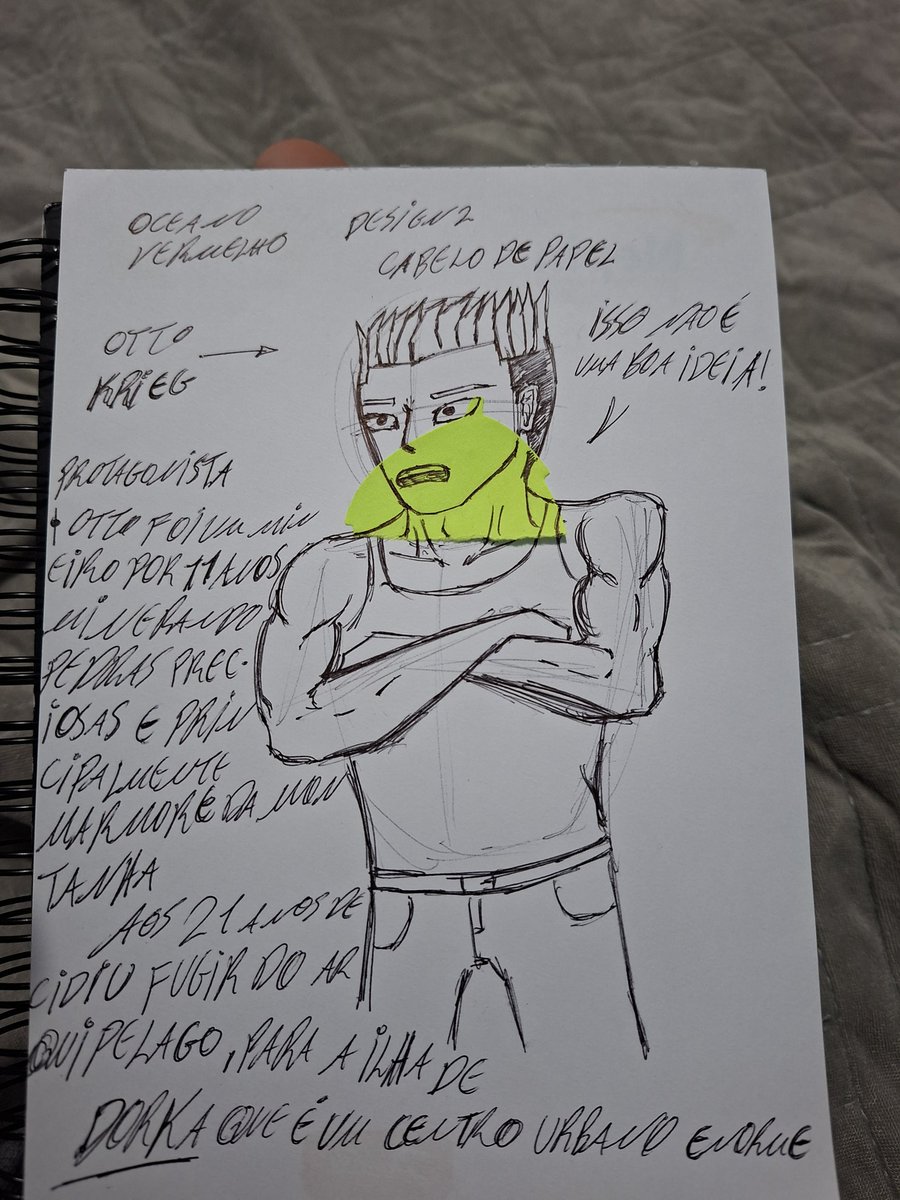 OCEANO
VERMELHO
DESIGN 2
CABELO DE PAPEL
ISSO NÃO É
UMA BOA IDEIA!
OTTO
KRIEG
PROTAGONISTA
OTTO FOI UM MIN
EIRO POR 11 ANOS
MINERANDO
PEDRAS PREC-
IOSAS E PRIN
CIPALMENTE
MARMORE DA MON
TANHA
AOS 21 ANOS DE
CIDIU FUGIR DO AR
QUIPELAGO, PARA A ILHA DE
DORKA QUE É UM CENTRO URBANO ENORME